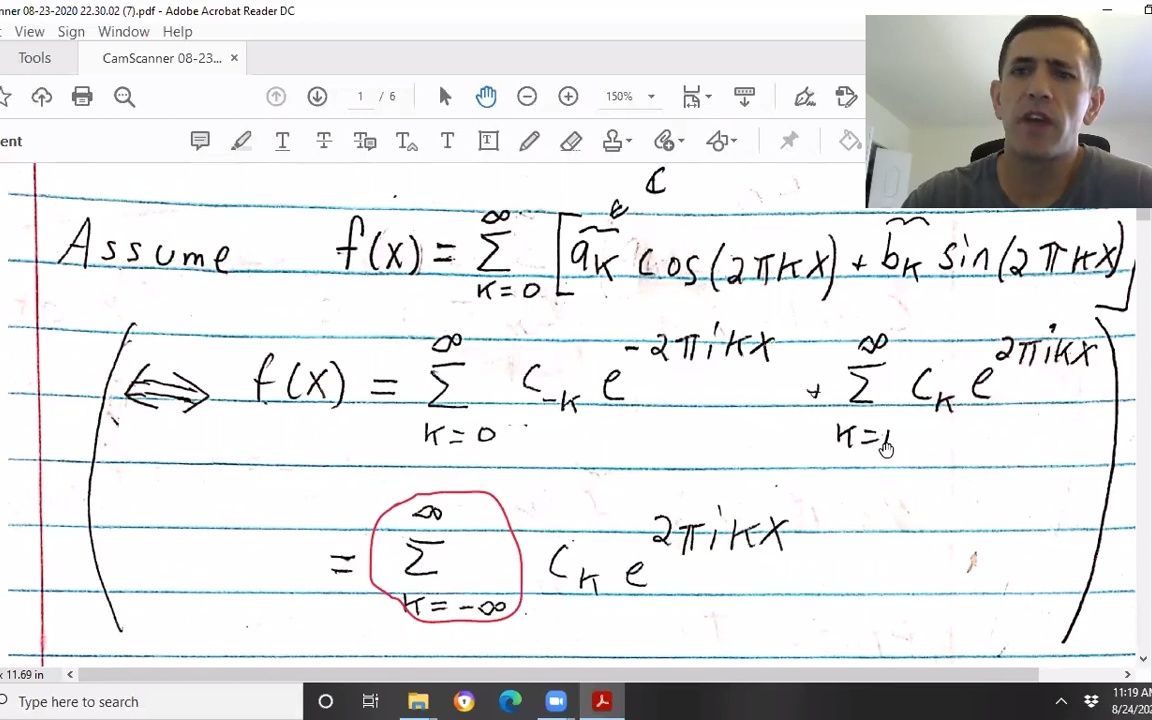 nner 08-23-2020 22.30.02 (7).pdf - Adobe Acrobat Reader DC
View Sign Window Help
Tools CamScanner 08-23... ×
1 / 6 150%
ent
ℂ
∈
Assume f(x) = ∑_{k=0}^{∞} [ã_k cos(2πkx) + b̃_k sin(2πkx)]
(⟺ f(x) = ∑_{k=0}^{∞} c_{-k} e^{-2πikx} + ∑_{k=1}^{∞} c_k e^{2πikx}
= ∑_{k=-∞}^{∞} c_k e^{2πikx} )
x 11.69 in
Type here to search
11:19 AM
8/24/202